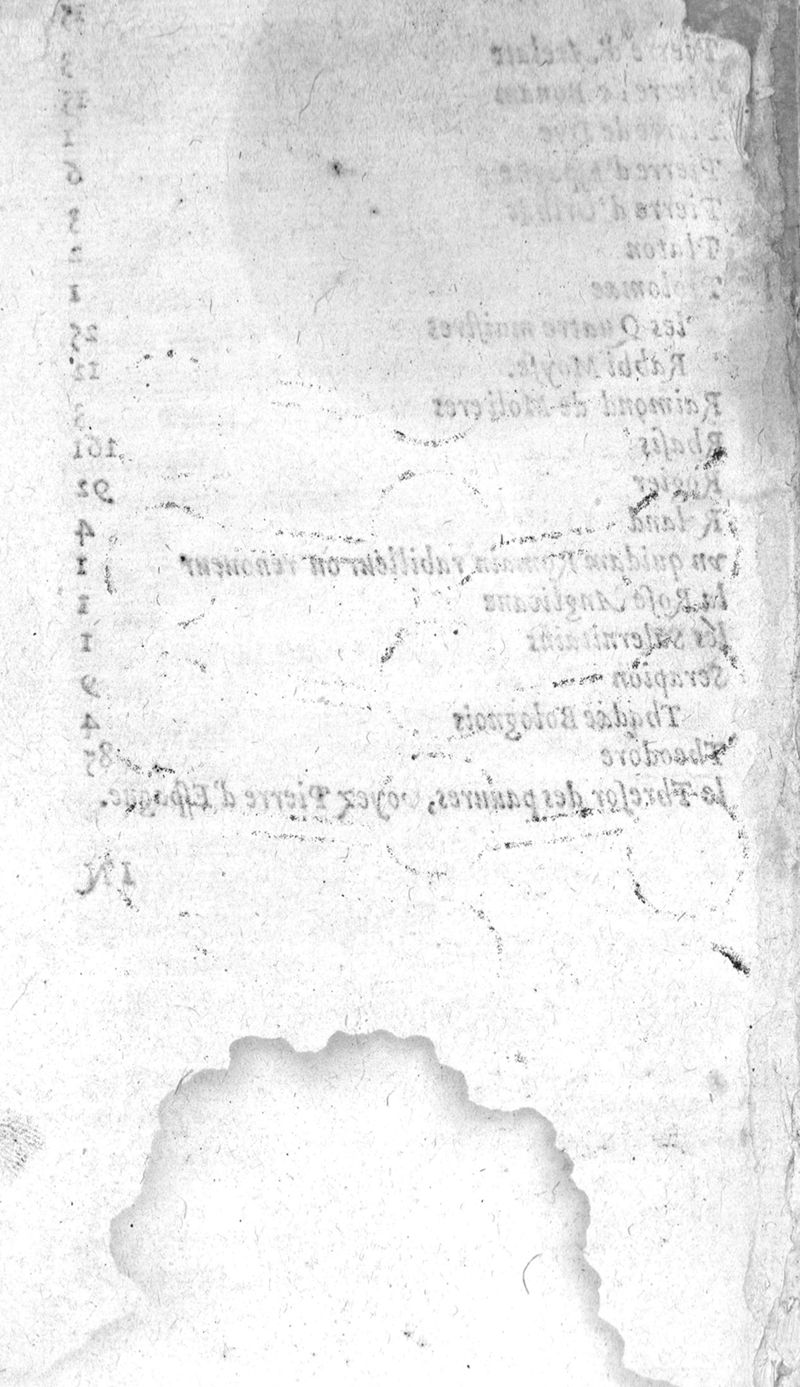 35
Pierre d'Arelate 3
Pierre de Bonam
1
Pierre d'Espagne 6
Pierre d' 3
Platon 2
Ptolomæe 1
les Quatre maistres 25
Rabbi Moyse. 12
Raimond de Molieres 3
Rhasis 161
Rogier 92
Roland 4
vn quidam Romain rabilleur ou renoueur 1
la Rose Anglicane 1
les Salernitains 1
Serapion 9
Thadæe Bolognois 4
Theodore 85
le Thresor des pauures, voyez Pierre d'Espagne.
IN